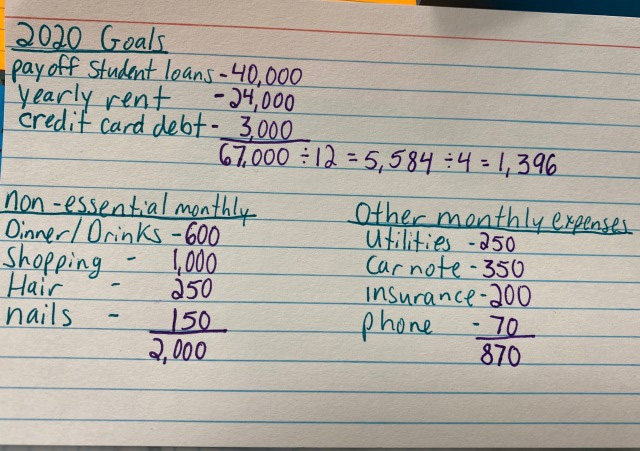 2020 Goals
pay off student loans - 40,000
yearly rent - 24,000
credit card debt - 3,000
67,000 ÷ 12 = 5,584 ÷ 4 = 1,396
non-essential monthly
Dinner/Drinks - 600
Shopping - 1,000
Hair - 250
nails - 150
2,000
Other monthly expenses
Utilities - 250
Car note - 350
insurance - 200
phone - 70
870